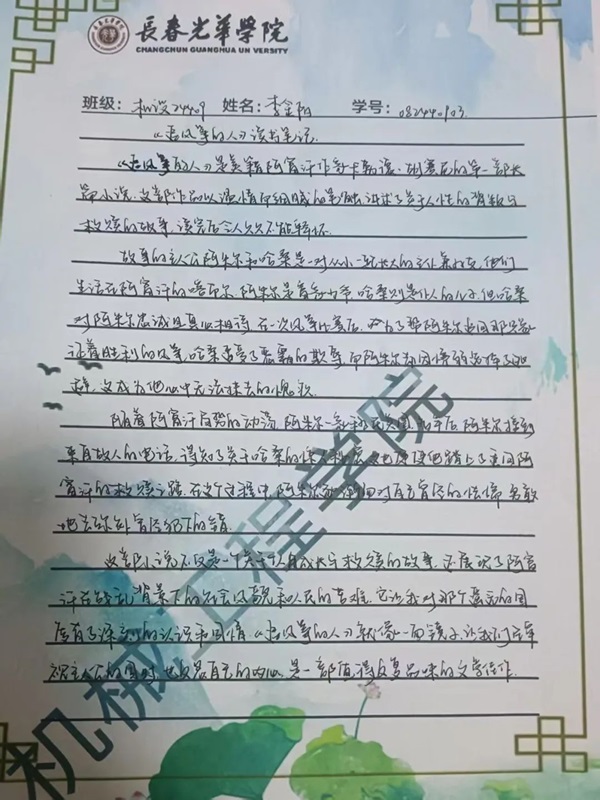 長春光華學院
CHANGCHUN GUANGHUA UNIVERSITY
班级：机设24409 姓名：李金阳 学号：082440903
《追风筝的人》读书笔记
《追风筝的人》是美籍阿富汗作家卡勒德·胡赛尼的第一部长
篇小说，这部作品以温情而细腻的笔触，讲述了关于人性的背叛与
救赎的故事，读完后令人久久不能释怀
故事的主人公阿米尔和哈桑是一对从小一起长大的主仆兼好友，他们
生活在阿富汗的喀布尔，阿米尔是富家少爷，哈桑则是仆人的儿子，但哈桑
对阿米尔忠诚且真心相待，在一次风筝比赛后，为了帮阿米尔追回那只象
征着胜利的风筝，哈桑遭受了恶霸的欺辱，而阿米尔却因懦弱选择了
这成为他心中无法抹去的愧疚
随着阿富汗局势的动荡，阿米尔一家移民美国，阿米尔接到
来自故人的电话，得知了关于哈桑的 他踏上了重回阿
富汗的救赎之路，在这个过程中，阿米尔 面对自己曾经的怯懦，勇敢
地去弥补曾经犯下的错
这部小说不仅是一个关于个人成长与救赎的故事，还展现了阿富
汗在战乱背景下的社会风貌和人民的苦难，它让我对那个遥远的国
度有了深刻的认识和同情，《追风筝的人》就像一面镜子，让我们在审
视主人公的同时，也 自己的内心，是一部值得反复品味的文学佳作
机械工程学院